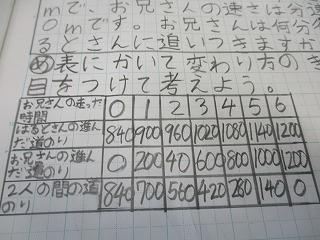 mで、お兄さんの速さは分速
0mです。お兄さんは何分
るとさんに追いつきますか
め表にかいて変わり方のき
目をつけて考えよう。
お兄さんの走った時間 0 1 2 3 4 5 6
はるとさんの進んだ道のり 840 900 960 1020 1080 1140 1200
お兄さんの進んだ道のり 0 200 40 600 800 1000 1200
2人の間の道のり 840 700 560 420 280 140 0